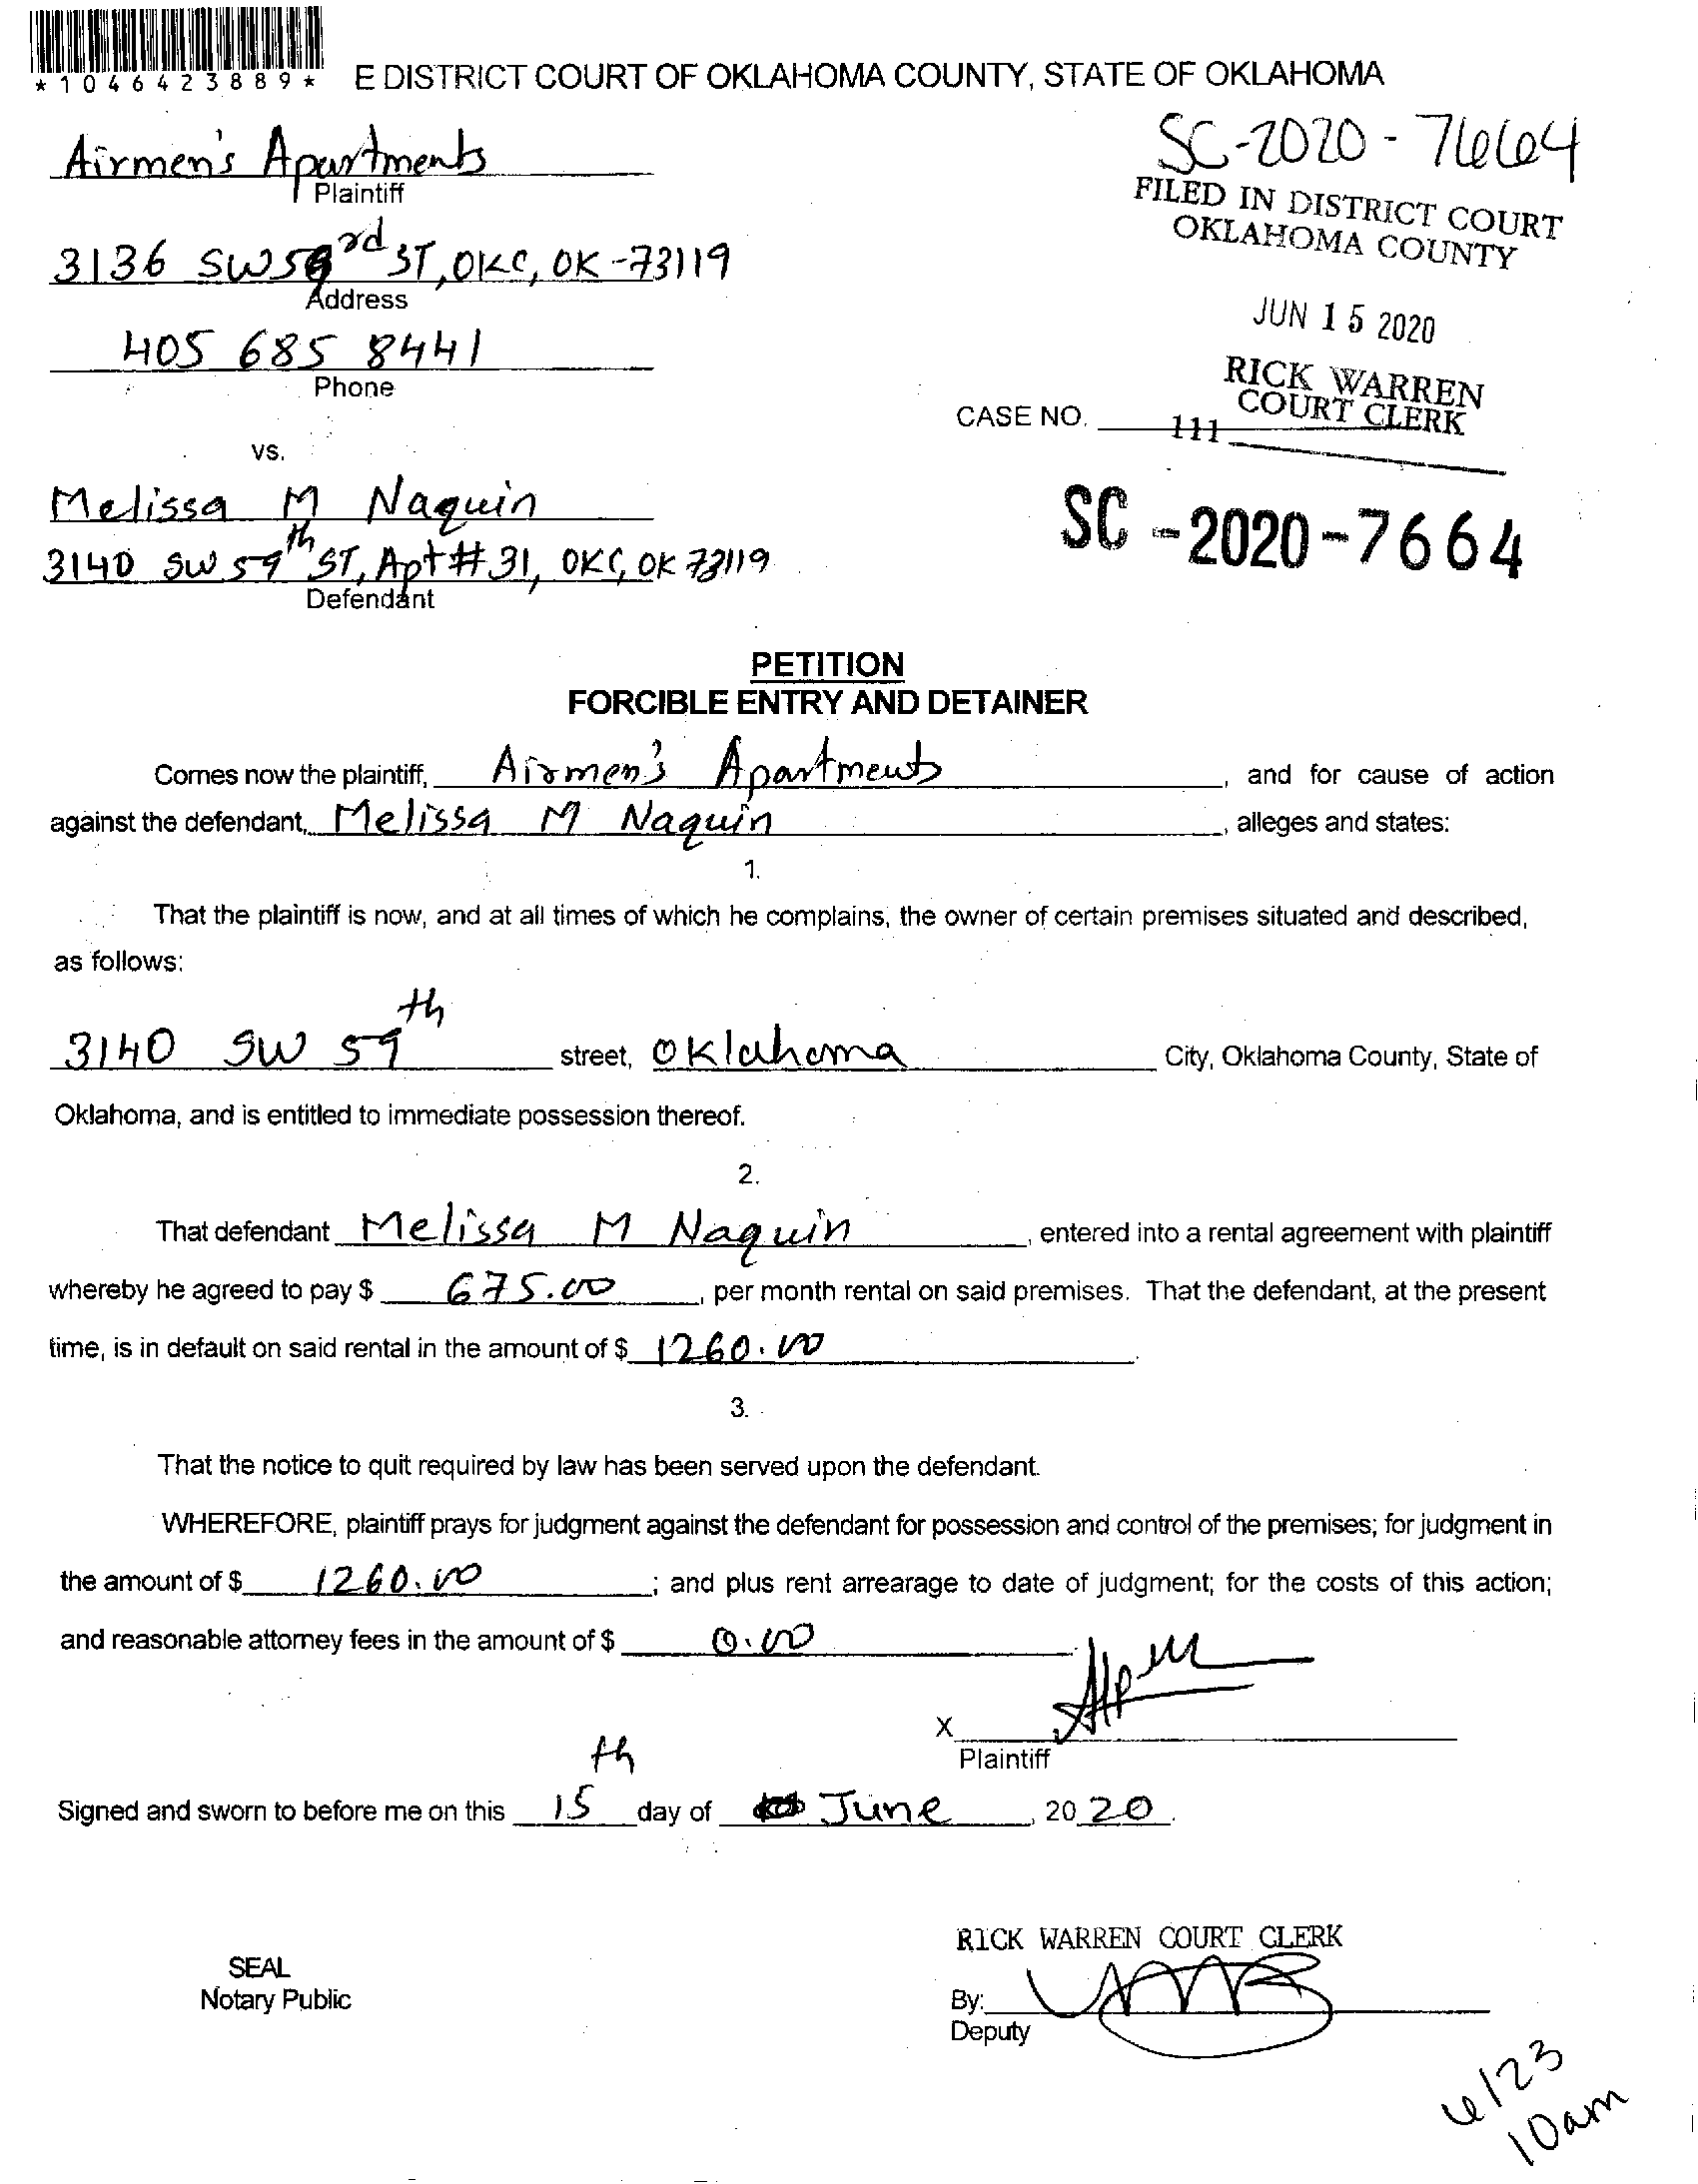 *1046423889*
E DISTRICT COURT OF OKLAHOMA COUNTY, STATE OF OKLAHOMA
SC-2020-7664
Airmen's Apartments
Plaintiff
FILED IN DISTRICT COURT
OKLAHOMA COUNTY
3136 SW 59rd ST, OKC, OK-73119
Address
JUN 15 2020
405 685 8441
Phone
RICK WARREN
COURT CLERK
CASE NO.
111
vs.
Melissa M Naquin
SC-2020-7664
3140 SW 59th ST, Apt # 31, OKC, OK 73119
Defendant
PETITION
FORCIBLE ENTRY AND DETAINER
Comes now the plaintiff, Airmen's Apartments, and for cause of action
against the defendant, Melissa M Naquin, alleges and states:
1.
That the plaintiff is now, and at all times of which he complains, the owner of certain premises situated and described,
as follows:
3140 SW 59th street, Oklahoma City, Oklahoma County, State of
Oklahoma, and is entitled to immediate possession thereof.
2.
That defendant Melissa M Naquin, entered into a rental agreement with plaintiff
whereby he agreed to pay $ 675.00, per month rental on said premises. That the defendant, at the present
time, is in default on said rental in the amount of $ 1260.00.
3.
That the notice to quit required by law has been served upon the defendant.
WHEREFORE, plaintiff prays for judgment against the defendant for possession and control of the premises; for judgment in
the amount of $ 1260.00; and plus rent arrearage to date of judgment; for the costs of this action;
and reasonable attorney fees in the amount of $ 0.00
X
Plaintiff
Signed and sworn to before me on this 15th day of June, 2020.
RICK WARREN COURT CLERK
SEAL
Notary Public
By:
Deputy
6/23
10am